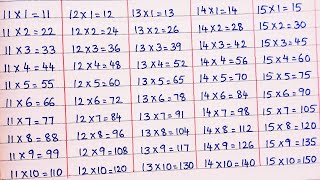 11 × 1 = 11 12 × 1 = 12 13 × 1 = 13 14 × 1 = 14 15 × 1 = 15
11 × 2 = 22 12 × 2 = 24 13 × 2 = 26 14 × 2 = 28 15 × 2 = 30
11 × 3 = 33 12 × 3 = 36 13 × 3 = 39 14 × 3 = 42 15 × 3 = 45
11 × 4 = 44 12 × 4 = 48 13 × 4 = 52 14 × 4 = 56 15 × 4 = 60
11 × 5 = 55 12 × 5 = 60 13 × 5 = 65 14 × 5 = 70 15 × 5 = 75
11 × 6 = 66 12 × 6 = 72 13 × 6 = 78 14 × 6 = 84 15 × 6 = 90
11 × 7 = 77 12 × 7 = 84 13 × 7 = 91 14 × 7 = 98 15 × 7 = 105
11 × 8 = 88 12 × 8 = 96 13 × 8 = 104 14 × 8 = 112 15 × 8 = 120
11 × 9 = 99 12 × 9 = 108 13 × 9 = 117 14 × 9 = 126 15 × 9 = 135
11 × 10 = 110 12 × 10 = 120 13 × 10 = 130 14 × 10 = 140 15 × 10 = 150